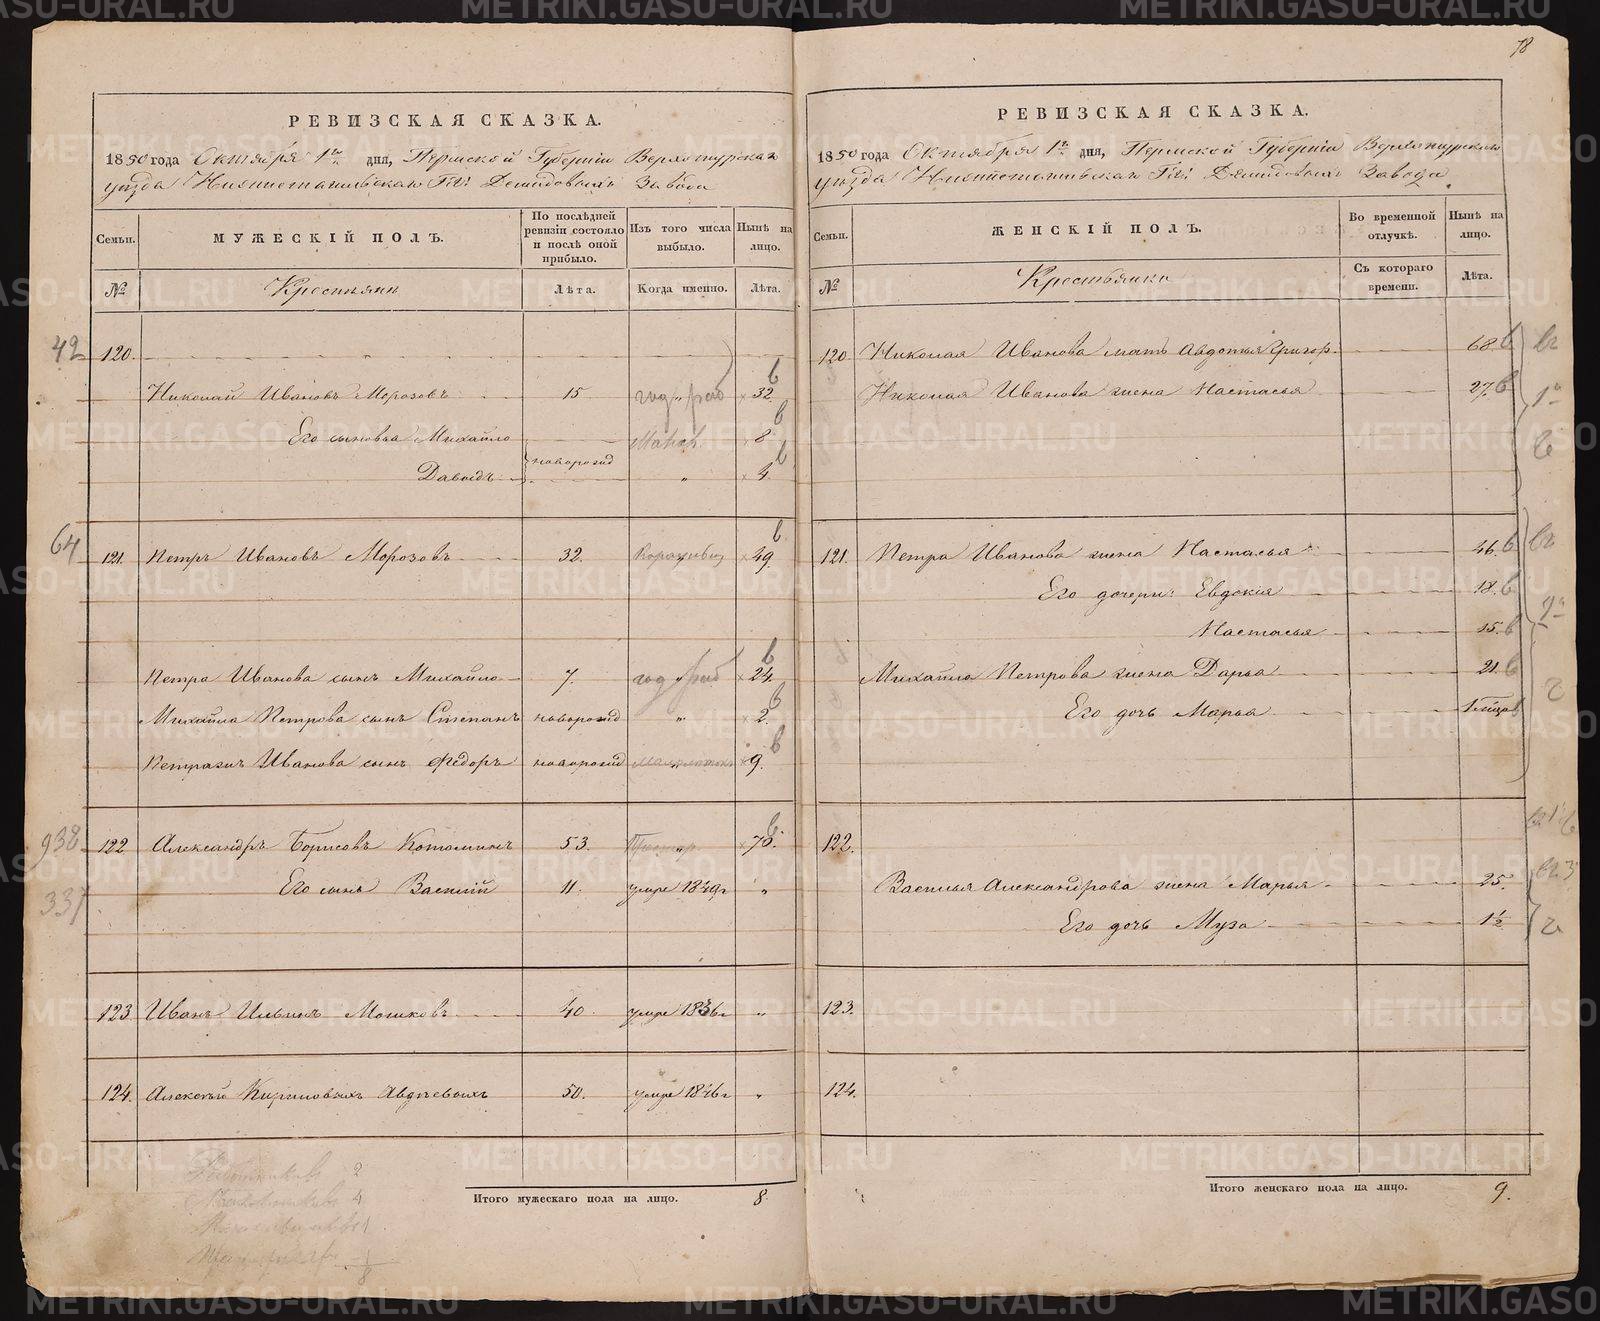 78
РЕВИЗСКАЯ СКАЗКА.
1850 года Октября 1го дня, Пермской Губерніи Верхотурскаго
уѣзда Нижнетагильскаго Гг: Демидовыхъ Завода
Семьи. МУЖЕСКІЙ ПОЛЪ. По послѣдней ревизіи состояло и послѣ оной прибыло. Изъ того числа выбыло. Нынѣ на лицо.
№ Крестьяне Лѣта. Когда именно. Лѣта.
42 120.
Николай Ивановъ Морозовъ 15 32.
Его сыновья Михайло 8.
Давыдъ новорожд „ 4.
64 121. Петръ Ивановъ Морозовъ 32. 49.
Петра Иванова сынъ Михайло 7. 24.
Михайла Петрова сынъ Степанъ новорожд „ 2.
Петра Иванова сынъ Федоръ новорожд „ 9.
938 122 Александръ Борисовъ 53. 70.
337 Его сынъ Василій 11. умре 1849г „
123. Иванъ Ильинъ 40. умре 1836г „
124. Алексѣй Авдѣевыхъ 50. умре 1846г „
Итого мужескаго пола на лицо. 8.
2
4
1
1
8
РЕВИЗСКАЯ СКАЗКА.
1850 года Октября 1го дня, Пермской Губерніи Верхотурскаго
уѣзда Нижнетагильскаго Гг: Демидовыхъ Завода
Семьи. ЖЕНСКІЙ ПОЛЪ. Во временной отлучкѣ. Нынѣ на лицо.
№ Крестьянки Съ котораго времени. Лѣта.
120 Николая Иванова мать Авдотья Григор. 68.
Николая Иванова жена Настасья 27.
121. Петра Иванова жена Настасья 46.
Его дочери: Евдокія 18.
Настасья 15.
Михайла Петрова жена Дарья 21.
Его дочь Марья
122.
Василья Александрова жена Марья 25.
Его дочь Муза 1½
123.
124.
Итого женскаго пола на лицо. 9.
METRIKI.GASO-URAL.RU